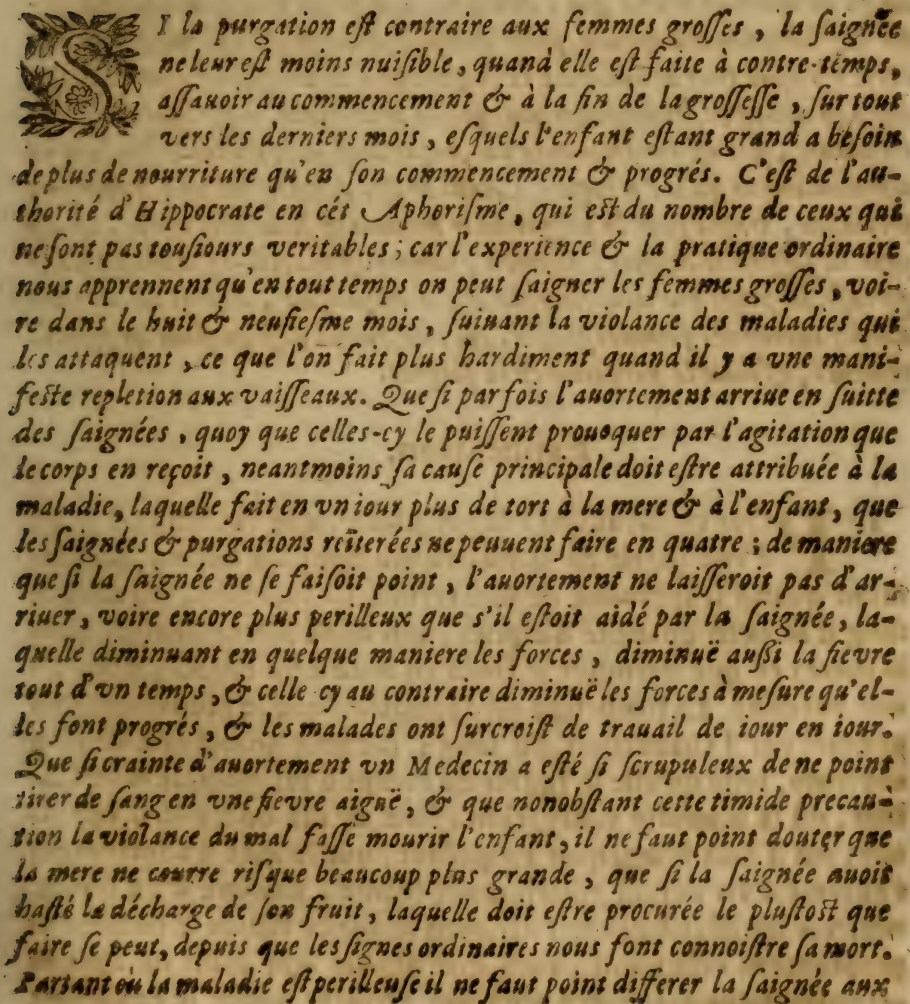 SI la purgation eſt contraire aux femmes groſſes, la ſaignée
ne leur eſt moins nuiſible, quand elle eſt faite à contre-temps,
aſſauoir au commencement & à la fin de la groſſeſſe, ſur tout
vers les derniers mois, eſquels l'enfant eſtant grand a beſoin
de plus de nourriture qu'en ſon commencement & progrés. C'eſt de l'au-
thorité d'Hippocrate en cét Aphoriſme, qui eſt du nombre de ceux qui
ne ſont pas touſiours veritables; car l'experience & la pratique ordinaire
nous apprennent qu'en tout temps on peut ſaigner les femmes groſſes, voi-
re dans le huit & neufieſme mois, ſuiuant la violance des maladies qui
les attaquent, ce que l'on fait plus hardiment quand il y a vne mani-
feſte repletion aux vaiſſeaux. Que ſi par fois l'auortement arriue en ſuitte
des ſaignées, quoy que celles-cy le puiſſent prouoquer par l'agitation que
le corps en reçoit, neantmoins ſa cauſe principale doit eſtre attribuée à la
maladie, laquelle fait en vn iour plus de tort à la mere & à l'enfant, que
les ſaignées & purgations reïterées ne peuuent faire en quatre; de maniere
que ſi la ſaignée ne ſe faiſoit point, l'auortement ne laiſſeroit pas d'ar-
riuer, voire encore plus perilleux que s'il eſtoit aidé par la ſaignée, la-
quelle diminuant en quelque maniere les forces, diminuë auſſi la fievre
tout d'vn temps, & celle cy au contraire diminuë les forces à meſure qu'el-
les font progrés, & les malades ont ſurcroiſt de trauail de iour en iour.
Que ſi crainte d'auortement vn Medecin a eſté ſi ſcrupuleux de ne point
tirer de ſang en vne fievre aiguë, & que nonobſtant cette timide precau-
tion la violance du mal faſſe mourir l'enfant, il ne faut point douter que
la mere ne courre riſque beaucoup plus grande, que ſi la ſaignée auoit
haſté la décharge de ſon fruit, laquelle doit eſtre procurée le pluſtoſt que
faire ſe peut, depuis que les ſignes ordinaires nous font connoiſtre ſa mort.
Partant où la maladie eſt perilleuſe il ne faut point differer la ſaignée aux